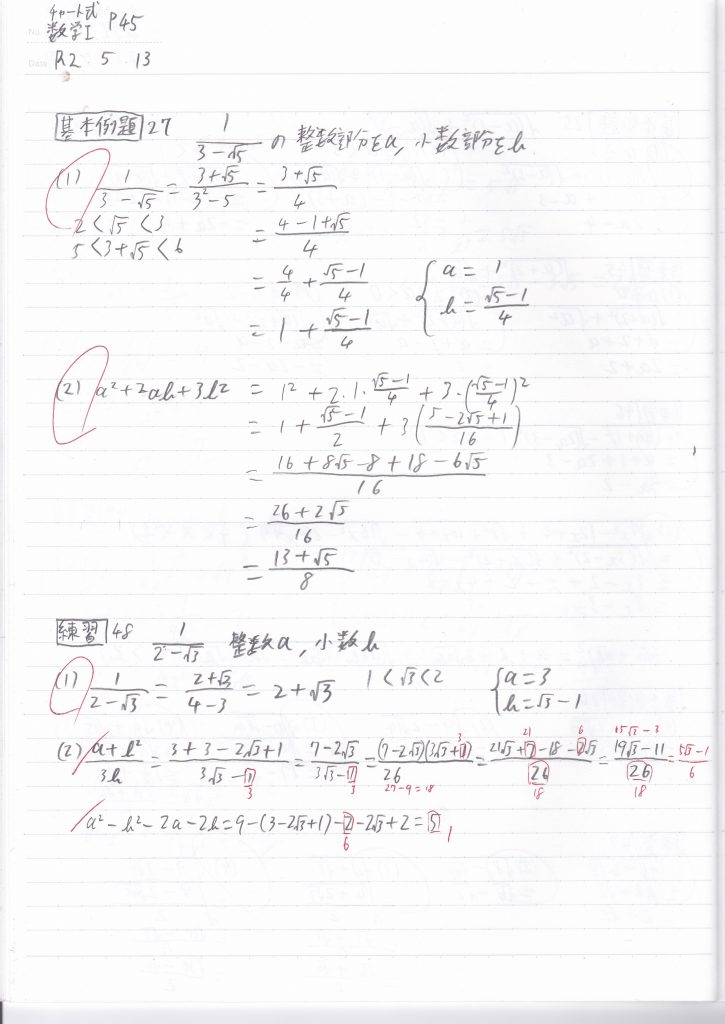 チャート式
No. 数学I P45
Date R2 . 5 . 13
基本例題 27 1/(3-√5) の整数部分をa, 小数部分をb
(1) 1/(3-√5) = (3+√5)/(3²-5) = (3+√5)/4
2<√5<3 = (4-1+√5)/4
5<3+√5<6
= 4/4 + (√5-1)/4 { a = 1
= 1 + (√5-1)/4 b = (√5-1)/4
(2) a²+2ab+3b² = 1² + 2・1・(√5-1)/4 + 3・((√5-1)/4)²
= 1 + (√5-1)/2 + 3((5-2√5+1)/16)
= (16+8√5-8+18-6√5)/16
= (26+2√5)/16
= (13+√5)/8
練習 48 1/(2-√3) 整数a, 小数b
(1) 1/(2-√3) = (2+√3)/(4-3) = 2+√3 1<√3<2 { a=3
b=√3-1
(2) (a+b²)/3b = (3+3-2√3+1)/(3√3-1) = (7-2√3)/(3√3-1) = (7-2√3)(3√3+1)/26 = (21√3+7-18-2√3)/26 = (19√3-11)/26 = (5√3-1)/6
3 3 3 27-9=18 21 6 18 15√3-3 18
a²-b²-2a-2b = 9-(3-2√3+1)-2-2√3+2 = 5 1
6